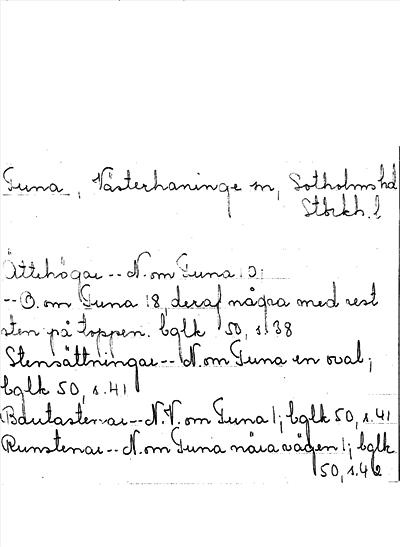 Tuna, Västerhaninge sn, Sotholms hd
Stbrkh. l
Ättehögar -- N. om Tuna
-- O. om Tuna 8, deraf några med rest
sten på toppen. bglk 50, s. 38
Stensättningar -- N. om Tuna en oval;
bglk 50, s. 41
Bautastenar -- N.V. om Tuna 1; bglk 50, s. 41
Runstenar -- N. om Tuna nära vägen 1; bglk
50, s. 42